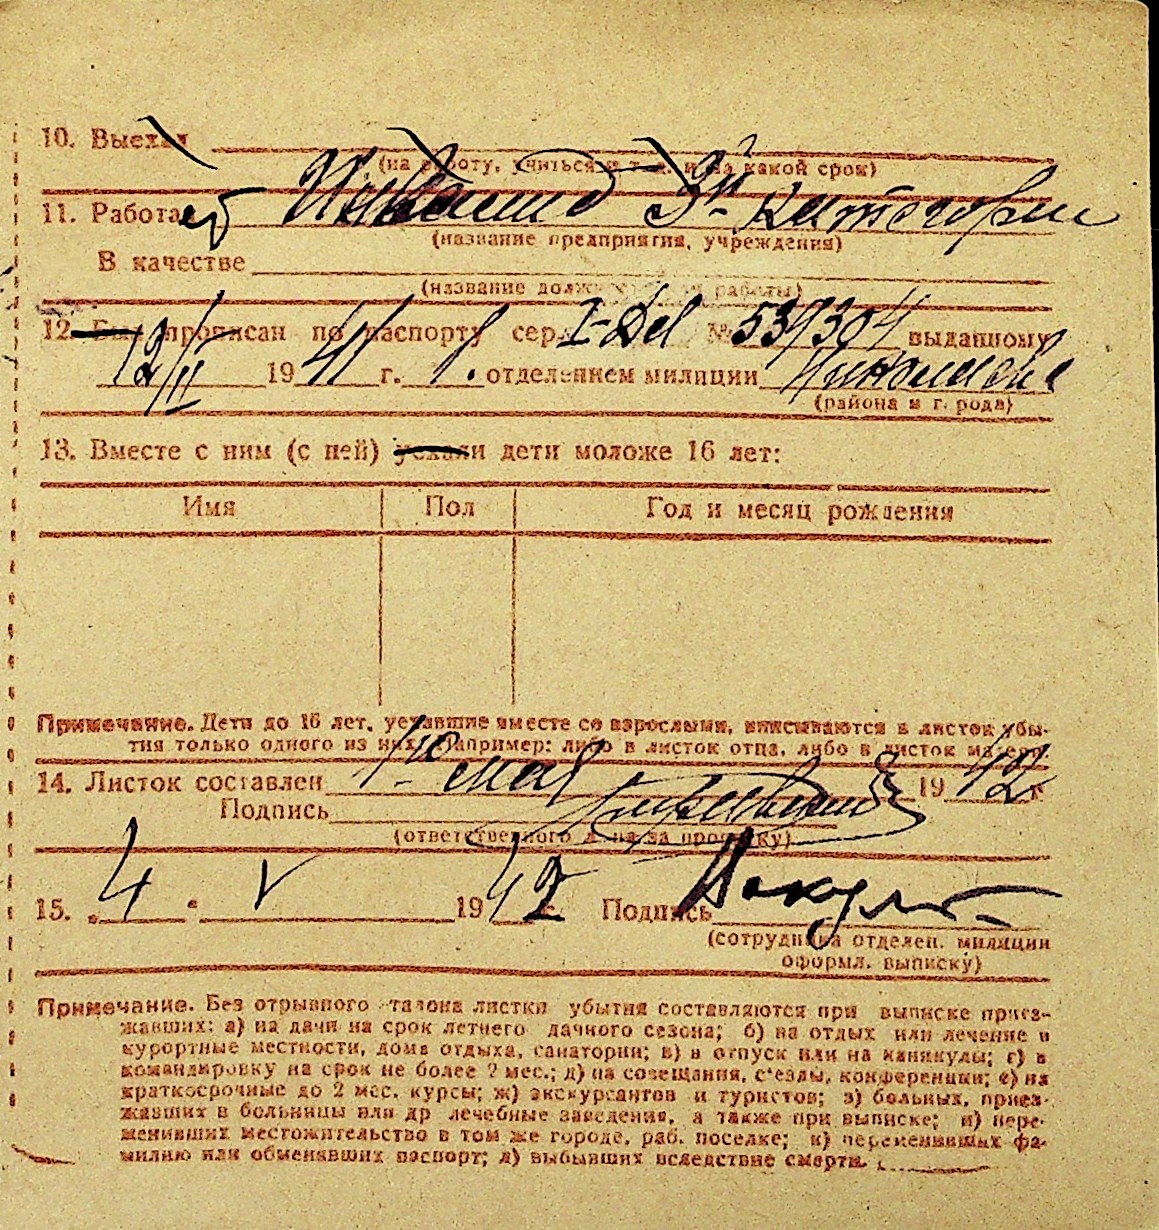 10. Выехал
(на работу, учиться и т. д. и на какой срок)
11. Работает Инвалид 3й категории
(название предприятия, учреждения)
В качестве
(название должности работы)
12. Был прописан по паспорту сер. I-Дд № 539304 выданному
12/II 1941 г. 1. отделением милиции
(района и города)
13. Вместе с ним (с ней) уехали дети моложе 16 лет:
Имя Пол Год и месяц рождения
Примечание. Дети до 16 лет, уехавшие вместе со взрослыми, вписываются в листок убы-
тия только одного из них, например: либо в листок отца, либо в листок матери.
14. Листок составлен 1го мая 1942 г.
Подпись
(ответственного лица за прописку)
15. „4 “ V 1942 Подпись
(сотрудника отделен. милиции
оформл. выписку)
Примечание. Без отрывного талона листки убытия составляются при выписке приез-
жавших: а) на дачи на срок летнего дачного сезона; б) на отдых или лечение в
курортные местности, дома отдыха, санатории; в) в отпуск или на каникулы; г) в
командировку на срок не более 2 мес.; д) на совещания, съезды, конференции; е) на
краткосрочные до 2 мес. курсы; ж) экскурсантов и туристов; з) больных, приез-
жавших в больницы или др лечебные заведения, а также при выписке; и) пере-
менивших местожительство в том же городе, раб. поселке; к) переменивших фа-
милию или обменявших паспорт; л) выбывших вследствие смерти.